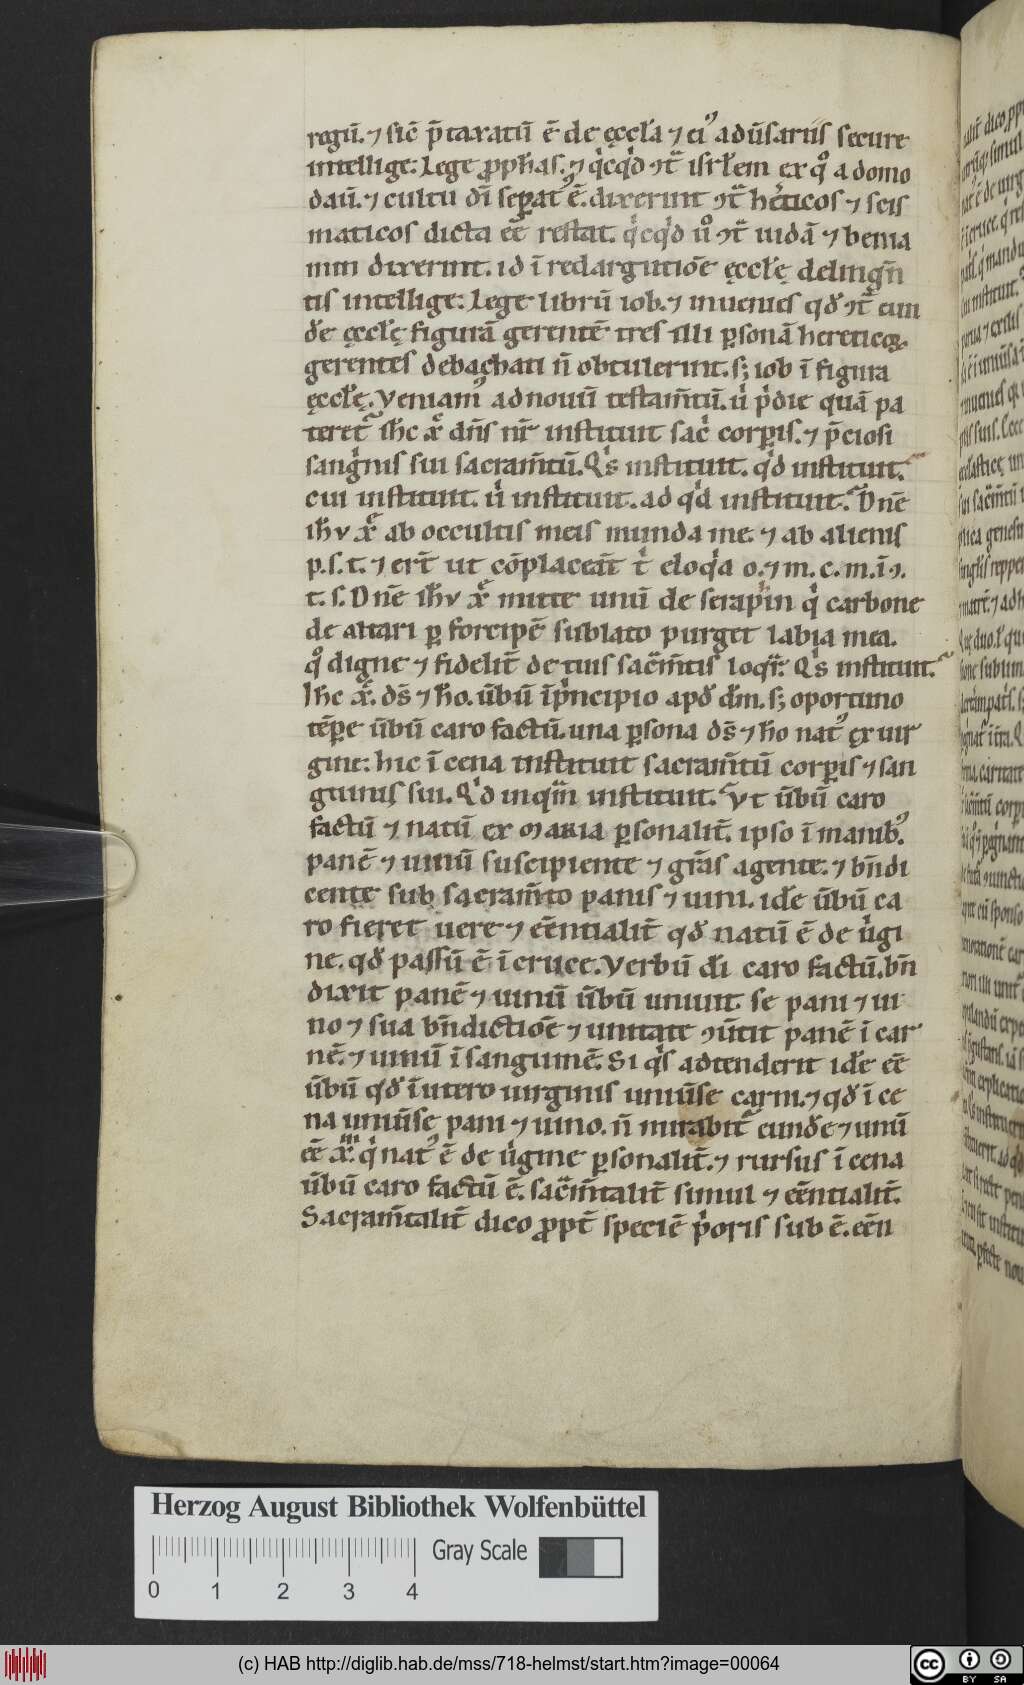 regū. ⁊ sic̄ p̄taxatū ē de ęccl̄a ⁊ ei᷒ adūsariis secure
intellige. Lege ꝓph̄as. ⁊ qͥcqͥd ɔt͛ isrl̄em ex qͦ a domo
daū. ⁊ cultu dī seꝑat᷒ ē. dixerunt ɔt͛ heͬticos ⁊ scis
maticos dicta eē restat. qͥcqͥd ūͦ ɔt͛ iudā ⁊ benia
min dixerint. id ī redargutiōe ęccl̄ę delinqn̄
tis intellige. Lege librū iob. ⁊ inuenies qd̄ ɔt͛ eun
d̄e ęccl̄ę figurā gerentē tres illi ꝑsonā hereticoꝝ
gerentes debachati n̄ obtulerint. s; iob ī figura
ęccl̄ę. Veniam᷒ ad nouū testam̄tū. uͥ pͥdie quā pa
teret͛ ih̄c xͨ dn̄s nr̄ instituit sac̄ corꝑis. ⁊ p̄ciosi
sangͥnis sui sacram̄tū. Qͥs instituit. qͥd instituit.
cui instituit. uͥ instituit. ad qͥd instituit. Dn̄e
ih̄v xͤ ab occultis meis munda me. ⁊ ab alienis
p. s. t. ⁊ ert̄ ut cōplaceāt tͥ eloqͥa o. ⁊ m. c. m. ī ɔ.
t. s. Dn̄e ih̄v xͤ mitte unū de seraphin qͥ carbone
de altari ꝑ forcipē sublato purget labia mea.
qͦ digne ⁊ fidelit̄ de tuis sac̄m̄tis loqr̄. Qͥs instituit.
Ih̄c xͨ. ds̄ ⁊ ho. ūbū īpͥncipio apd̄ dm̄. s; oportuno
tēꝑe ūbū caro factū. una ꝑsona ds̄ ⁊ ho nat᷒ ex uir
gine: hic ī cena instituit sacram̄tū corꝑis ⁊ san
guinis sui. Qͥd inquā instituit. Vt ūbū caro
factū ⁊ natū ex maria ꝑsonalit̄. ipso ī manib᷒
panē ⁊ uinū suscipiente ⁊ grās agente. ⁊ bn̄di
cente sub sacram̄to panis ⁊ uini. id̄e ūbū ca
ro fieret uere ⁊ eēntialit̄ qd̄ natū ē de uͥgi
ne. qd̄ passū ē ī cruce. Verbū dī caro factū. bn̄
dixit panē ⁊ uinū ūbū uniuit se pani ⁊ ui
no ⁊ sua bn̄dictiōe ⁊ unitate ɔūtit panē ī car
nē. ⁊ uinū ī sanguinē. Si qͥs adtenderit id̄e eē
ūbū qd̄ ī utero uirginis uniūse carni. ⁊ qd̄ ī ce
na uniūse pani ⁊ uino. n̄ mirabit͛ eund̄e ⁊ unū
eē xͫ. qͥ nat᷒ ē de uͥgine ꝑsonalit̄. ⁊ rursus ī cena
ūbū caro factū ē. sac̄m̄talit̄ simul ⁊ eēntialit̄.
Sacram̄talit̄ dico ꝓpt̄ speciē pͥoris sub ē. eēn
Herzog August Bibliothek Wolfenbüttel
Gray Scale
0 1 2 3 4
(c) HAB http://diglib.hab.de/mss/718-helmst/start.htm?image=00064
cc BY SA